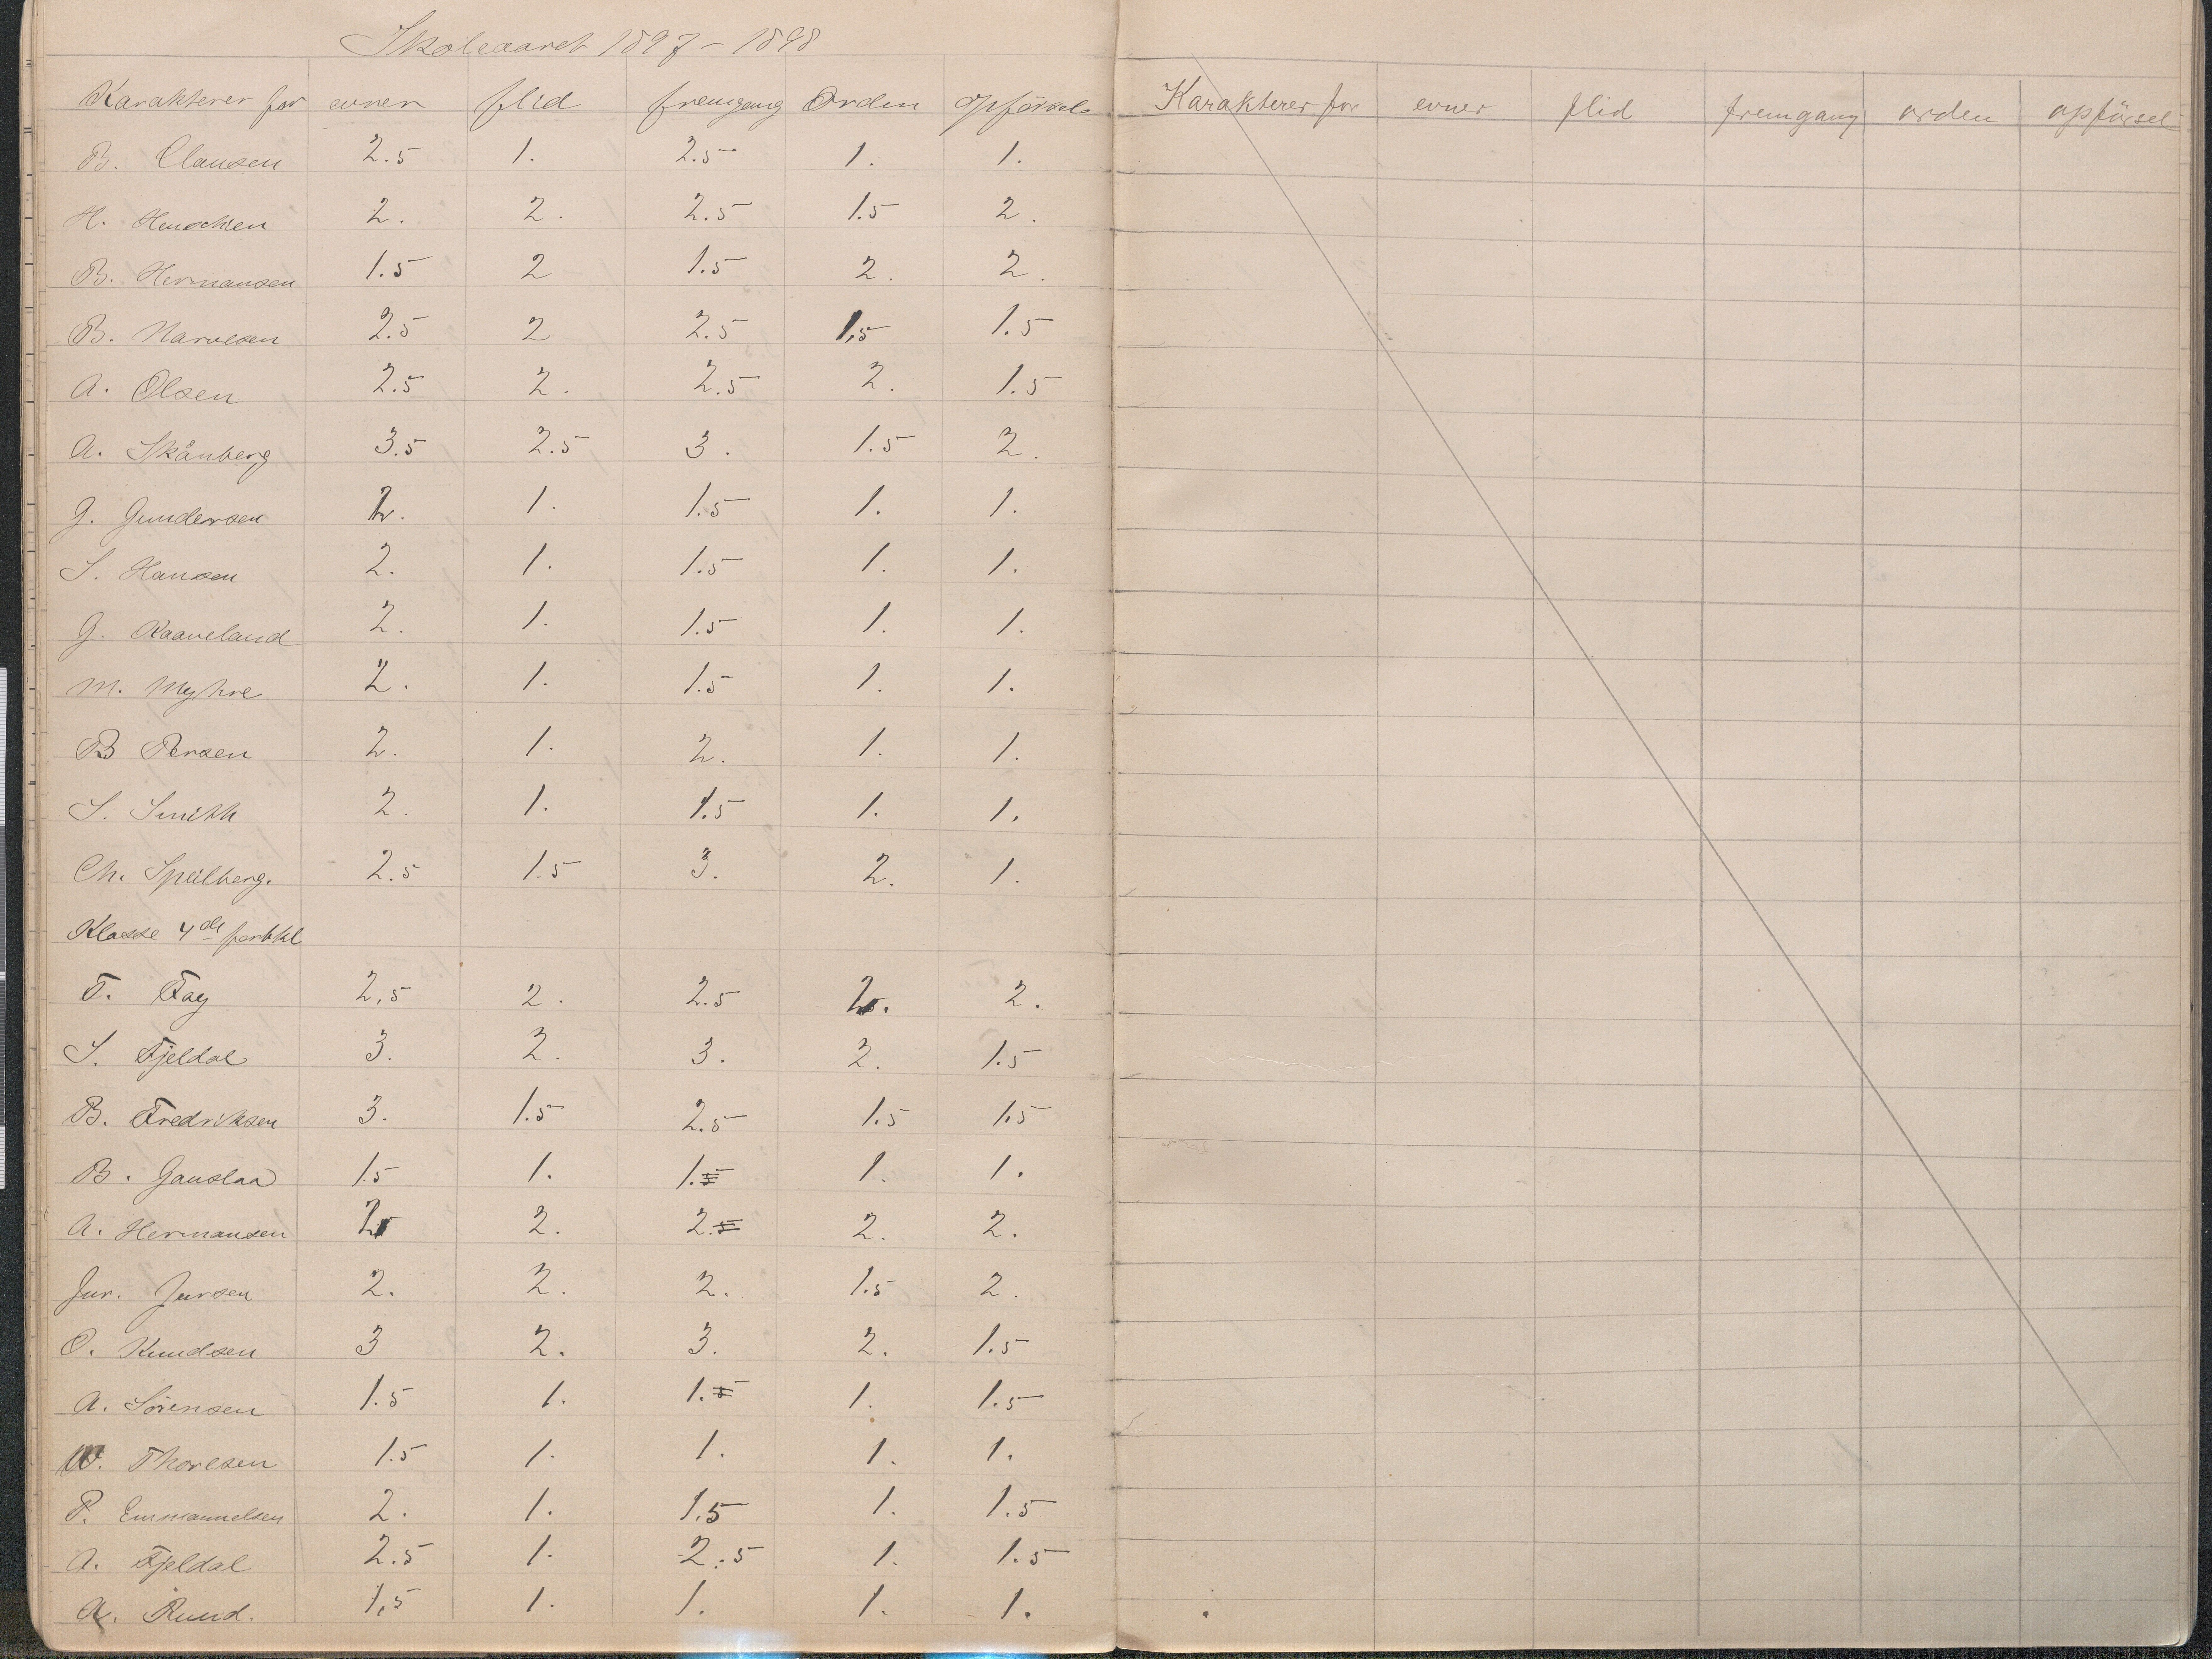 Skoleaaret 1897-1898
Karakterer for evner flid fremgang Orden opførsel
B. Clausen 2.5 1. 2.5 1. 1.
H. 2. 2. 2.5 1.5 2.
B. Hermansen 1.5 2 1.5 2. 2.
B. Narvesen 2.5 2 2.5 1,5 1.5
A. Olsen 2.5 2. 2.5 2. 1.5
A. Skånberg 3.5 2.5 3. 1.5 2.
G. Gundersen 2. 1. 1.5 1. 1.
S. Hansen 2. 1. 1.5 1. 1.
G. Kaaveland 2. 1. 1.5 1. 1.
M. Myhre 2. 1. 1.5 1. 1.
B Persen 2. 1. 2. 1. 1.
S. Smith 2. 1. 1.5 1. 1.
Ch. Speilberg. 2.5 1.5 3. 2. 1.
Klasse 4de
T. Fay 2,5 2. 2.5 2. 2.
S. Fjeldal 3. 2. 3. 2. 1.5
B. Fredriksen 3. 1.5 2.5 1.5 1.5
B. Gauslaa 1.5 1. 1.5 1. 1.
A. Hermansen 2 2. 2.5 2. 2.
Jur. Jursen 2. 2. 2. 1.5 2.
O. Knudsen 3 2. 3. 2. 1.5
A. Sörensen 1.5 1. 1.5 1. 1.5
W. Thoresen 1.5 1. 1. 1. 1.
P. Emmanuelsen 2. 1. 1.5 1. 1.5
A. Fjeldal 2.5 1. 2.5 1. 1.5
A. Ruud. 1,5 1. 1. 1. 1.
Karakterer for evner flid fremgang orden opførsel